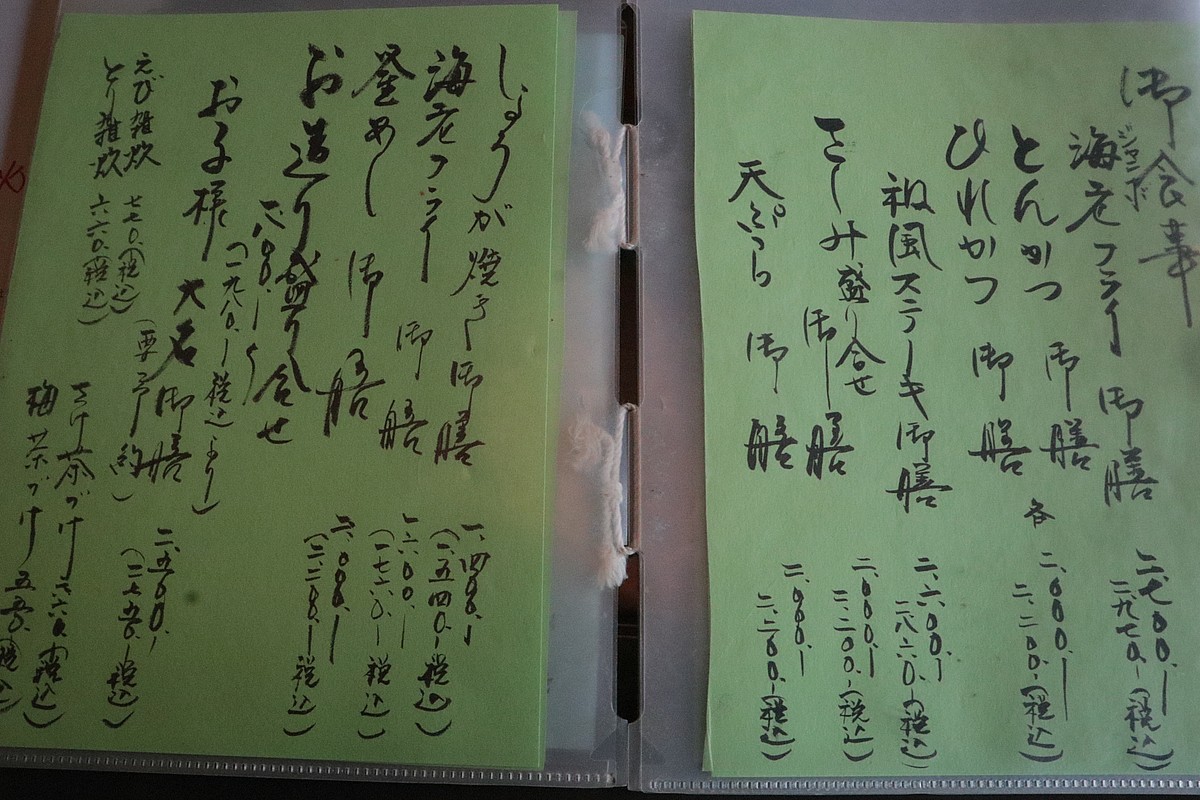 御食事
ジャンボ
海老フライ 御膳 二、七〇〇、ー
二、九七〇、ー(税込)
とんかつ 御膳
ひれかつ 御膳
各 二、〇〇〇、ー
二、二〇〇、ー(税込)
祖風ステーキ御膳 二、六〇〇、ー
二、八六〇、ー(税込)
さしみ盛り合せ 御膳 二、〇〇〇、ー
二、二〇〇、ー(税込)
天ぷら 御膳 二、〇〇〇、ー
二、二〇〇、ー(税込)
しょうが焼き御膳 一、四〇〇、ー
(一、五四〇、ー税込)
海老フライ 御膳 一、六〇〇、ー
(一、七六〇、ー税込)
釜めし 御膳 二、〇〇〇、ー
(二、二〇〇、ー税込)
お造り盛り合せ
一、八〇〇、ーより
(一、九八〇、ー税込より)
お子様 大名 御膳 二、五〇〇、ー
(要予約) (二、七五〇、ー税込)
えび雑炊 七七〇、(税込)
とり雑炊 六六〇、(税込)
さけ茶づけ 六六〇、(税込)
梅茶づけ 五五〇、(税込)